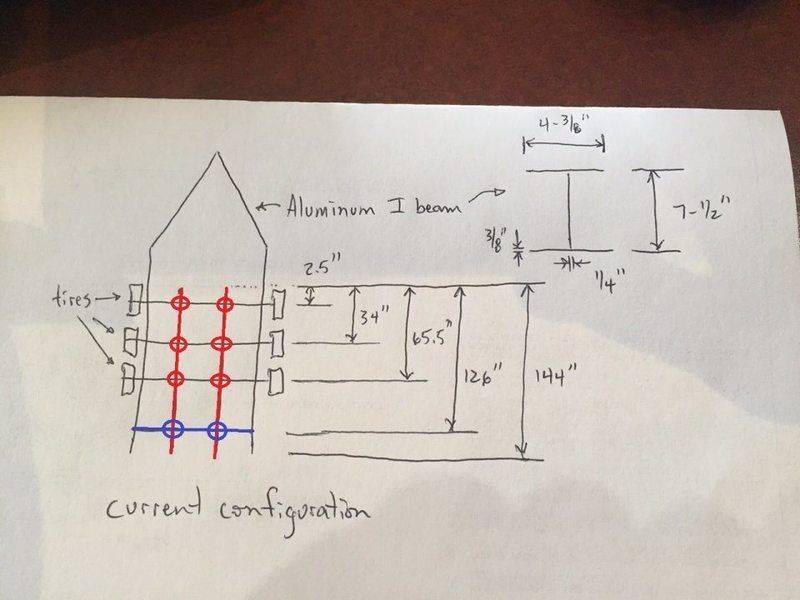 4-3/8"
Aluminum I beam
7-1/2"
3/8"
1/4"
2.5"
tires
34"
65.5"
126"
144"
current configuration